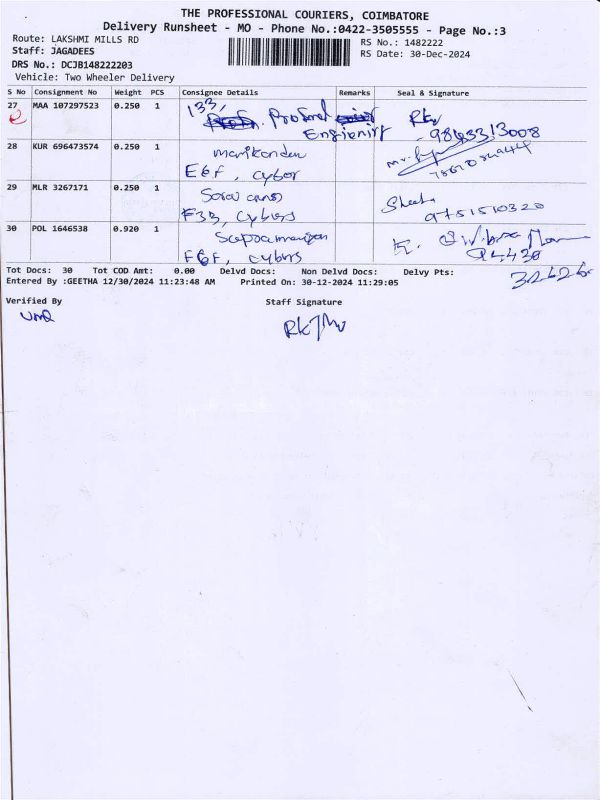 THE PROFESSIONAL COURIERS, COIMBATORE
Delivery Runsheet - MO - Phone No.:0422-3505555 - Page No.:3
Route: LAKSHMI MILLS RD
RS No.: 1482222
Staff: JAGADEES
RS Date: 30-Dec-2024
DRS No.: DCJB148222203
Vehicle: Two Wheeler Delivery
S No Consignment No Weight PCS Consignee Details Remarks Seal & Signature
27 MAA 107297523 0.250 1 133,
28 KUR 696473574 0.250 1 manikandan
E6F, cyber
29 MLR 3267171 0.250 1
F33, cybers
9751510320
30 POL 1646538 0.920 1
F6F, cybers
Tot Docs: 30 Tot COD Amt: 0.00 Delvd Docs: Non Delvd Docs: Delvy Pts:
Entered By :GEETHA 12/30/2024 11:23:48 AM Printed On: 30-12-2024 11:29:05
Verified By
Staff Signature